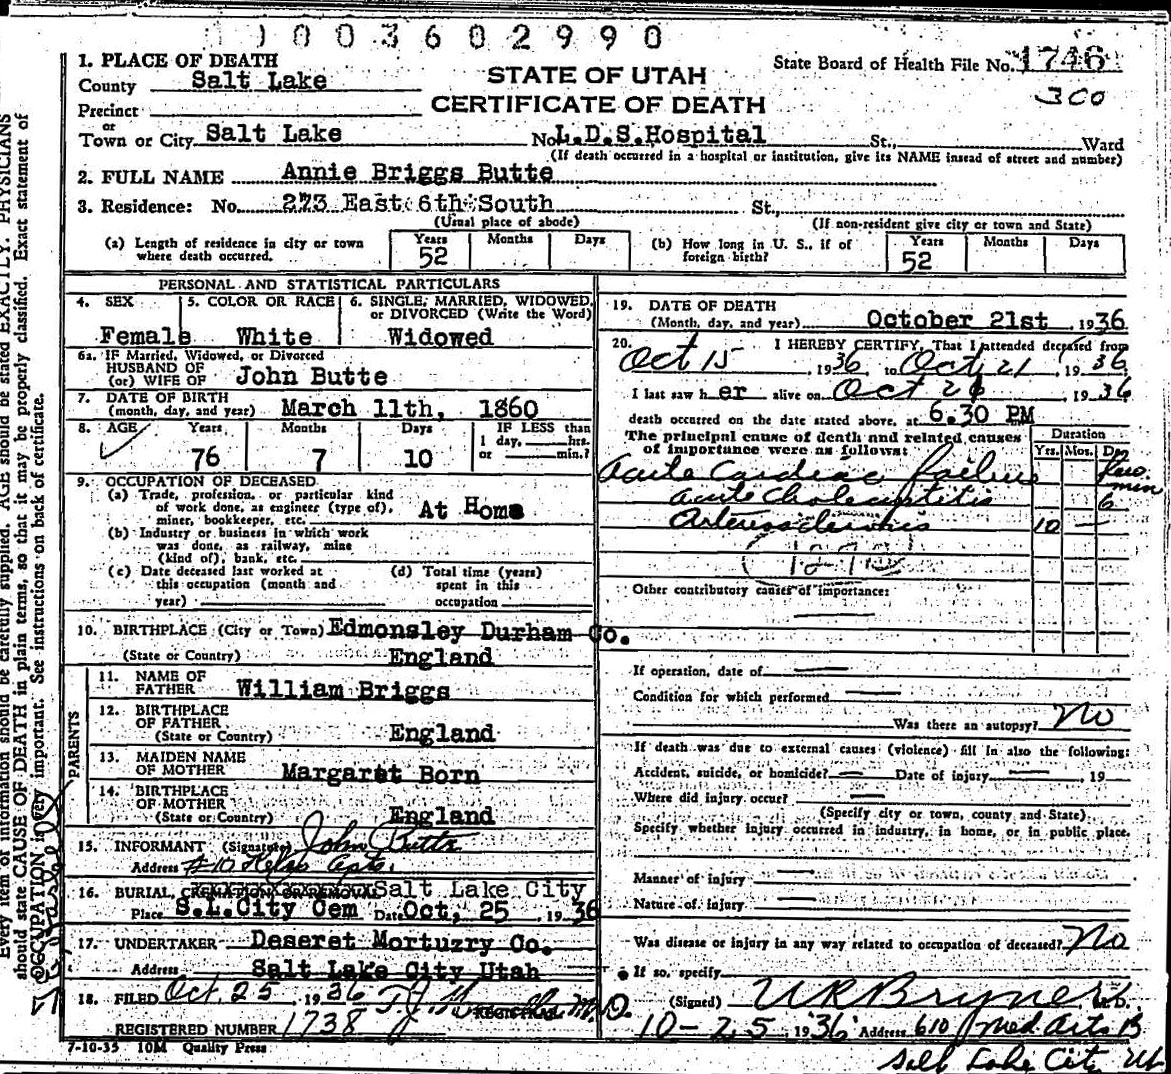 1 0 0 3 6 0 2 9 9 0
1. PLACE OF DEATH
County Salt Lake
Precinct
or
Town or City Salt Lake
STATE OF UTAH
CERTIFICATE OF DEATH
State Board of Health File No. 1746
300
No. L.D.S.Hospital St., Ward
(If death occurred in a hospital or institution, give its NAME insead of street and number)
2. FULL NAME Annie Briggs Butte
3. Residence: No. 273 East 6th South St.,
(Usual place of abode) (If non-resident give city or town and State)
(a) Length of residence in city or town where death occurred. Years 52 Months Days
(b) How long in U. S., if of foreign birth? Years 52 Months Days
PERSONAL AND STATISTICAL PARTICULARS
4. SEX Female
5. COLOR OR RACE White
6. SINGLE, MARRIED, WIDOWED, or DIVORCED (Write the Word) Widowed
6a. IF Married, Widowed, or Divorced
HUSBAND OF
(or) WIFE OF John Butte
7. DATE OF BIRTH
(month, day, and year) March 11th, 1860
8. AGE Years Months Days IF LESS than
1 day, hrs.
or min.?
76 7 10
9. OCCUPATION OF DECEASED
(a) Trade, profession, or particular kind
of work done, as engineer (type of),
miner, bookkeeper, etc. At Home
(b) Industry or business in which work
was done, as railway, mine
(kind of), bank, etc.
(c) Date deceased last worked at
this occupation (month and
year)
(d) Total time (years)
spent in this
occupation
10. BIRTHPLACE (City or Town) Edmonsley Durham Co.
(State or Country) England
PARENTS
11. NAME OF
FATHER William Briggs
12. BIRTHPLACE
OF FATHER
(State or Country) England
13. MAIDEN NAME
OF MOTHER Margaret Born
14. BIRTHPLACE
OF MOTHER
(State or Country) England
15. INFORMANT (Signature) John Butte
Address Apts.
16. BURIAL, CREMATION OR REMOVAL Salt Lake City
Place S.L.City Cem Date Oct, 25 , 1936
17. UNDERTAKER Deseret Mortuzry Co.
Address Salt Lake City Utah
18. FILED Oct. 25, 1936
REGISTRAR
REGISTERED NUMBER 1738
7-10-35 10M Quality Press
19. DATE OF DEATH
(Month, day, and year) October 21st , 1936
20. I HEREBY CERTIFY, That I attended deceased from
Oct 15 , 1936 to Oct 21 , 1936.
I last saw her alive on Oct 21 , 1936
death occurred on the date stated above, at 6.30 PM
The principal cause of death and related causes
of importance were as follows:
Duration
Yrs. Mos. Ds.
Acute Cardiac failure few min
Acute Cholecystitis 6
Arteriosclerosis 10 —
127
Other contributory causes of importance:
If operation, date of
Condition for which performed
Was there an autopsy? No
If death was due to external causes (violence) fill in also the following:
Accident, suicide, or homicide? Date of injury , 19
Where did injury occur?
(Specify city or town, county and State)
Specify whether injury occurred in industry, in home, or in public place.
Manner of injury
Nature of injury
Was disease or injury in any way related to occupation of deceased? No
If so, specify
(Signed) U R Bryner M.D.
10-25 1936 Address 610 Med. Arts B
Salt Lake City Ut
Every item of information should be carefully supplied. AGE should be stated EXACTLY. PHYSICIANS
should state CAUSE OF DEATH in plain terms, so that it may be properly classified. Exact statement of
OCCUPATION is very important. See instructions on back of certificate.